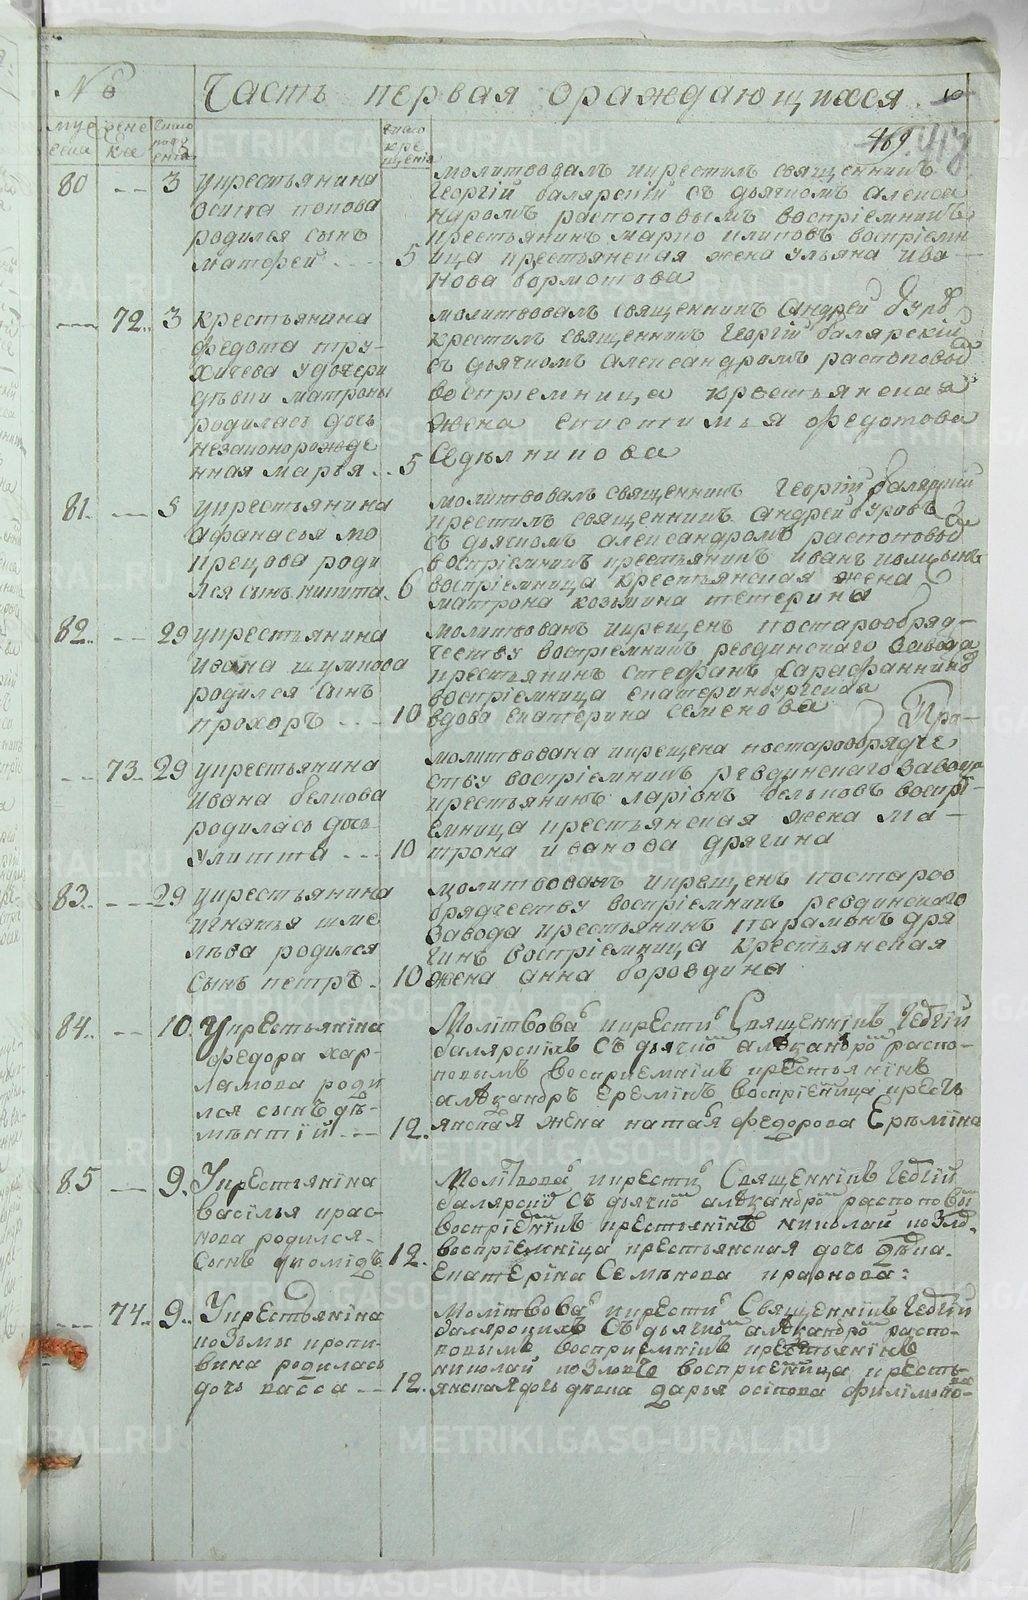 № 6 Часть первая ораждающихся
469.
муе
ска
жене
ка
число
рожд
енiя
число
кре
щенiя
80 -- 3 укрестьянина
осипа попова
родился сынъ
матфей --- 5
молитвовалъ икрестилъ священникъ
Георгiй балярскiй съ дьячкомъ алекса
ндромъ распоповымъ воспрiемникъ
крестьянинъ марко климовъ воспрiемн
ица крестьянская жена ульяна ива-
нова бормотова
--- 72.. 3 крестьянина
федота тру-
хичева удочери
дѣвки матроны
родилась дочь
незаконорожде
нная марья .. 5
молитвовалъ священникъ Андрей буровъ
крестилъ священникъ Георгiй балярскiй
съ дьячкомъ александромъ распоповой
воспрiемница крестьянская
жена епистимья федотова
Седѣлникова
81. --- 3 укрестьянина
афанасья мо
крецова роди
лся сынъ никита. 6
молитвовалъ священникъ Георгiй балярскiй
крестилъ священникъ Андрей буровъ
съ дьячкомъ александромъ распоповой
воспрiемникъ крестьянинъ иванъ
воспрiемница крестьянская жена
матрона козьмина тетерина
82.. -- 29 укрестьянина
ивана шумкова
родился сынъ
прохоръ --- 10
молитвованъ икрещенъ постарообряд-
честву воспрiемникъ ревдинскаго завода
крестьянинъ стефанъ сарафанниковъ
воспрiемница екатеринбургская
вдова екатерина семенова
Про-
--- 73.. 29 укрестьянина
ивана белкова
родилась дочь
улитта --- 10
молитвована икрещена постарообрядче
ству воспрiемникъ ревдинскаго завода
крестьянинъ ларiонъ бѣлковъ воспрi-
емница крестьянская жена ма-
трона иванова дрягина
83.. --- 29 укрестьянина
игнатья шме
лѣва родился
сынъ петръ. 10
молитвованъ икрещенъ постароо
брядчеству воспрiемникъ ревдинскаго
завода крестьянинъ парамонъ дря
гинъ воспрiемница крестьянская
жена анна бороздина
84.. -- 10. Укрестьянiна
федора хар-
ламова роди
лся сынъ дѣ-
мѣнтiй --- 12.
Молiтвова икрести Священнiкъ Геѡгiй
балярскiхъ съ дьячко алѣкандро распо-
повымъ восприемнiкъ крестьянiнъ
алѣкандръ Ереминъ воспрiеница кресть
янская жена натая федорова Ерѣмiна
85 --- 9. Укрестьянiна
василья крас-
нова родился-
сынъ диомiдъ 12.
Молiтвова икрести Священнiкъ Геѡгiй
балярскiй съ дьячко алѣкандро распоповы
воспрiемнiкъ крестьянiнъ николай козло.
воспрiемнiца крестьянская дочь дѣвка.
Екатерiна Семѣнова краснова:
--- 74.. 9.. Укрестьянiна
козьмы кропи-
вина родилась
дочь васса -- 12.
Молiтвова икрести Священнiкъ Геѡгiй
балярскихъ съ дьячко алѣкандро распо-
повымъ восприемнiкъ крестьянiнъ
николай козловъ восприеница кресть-
янская дочь дѣвка дарья осiпова филiмоно-
ва